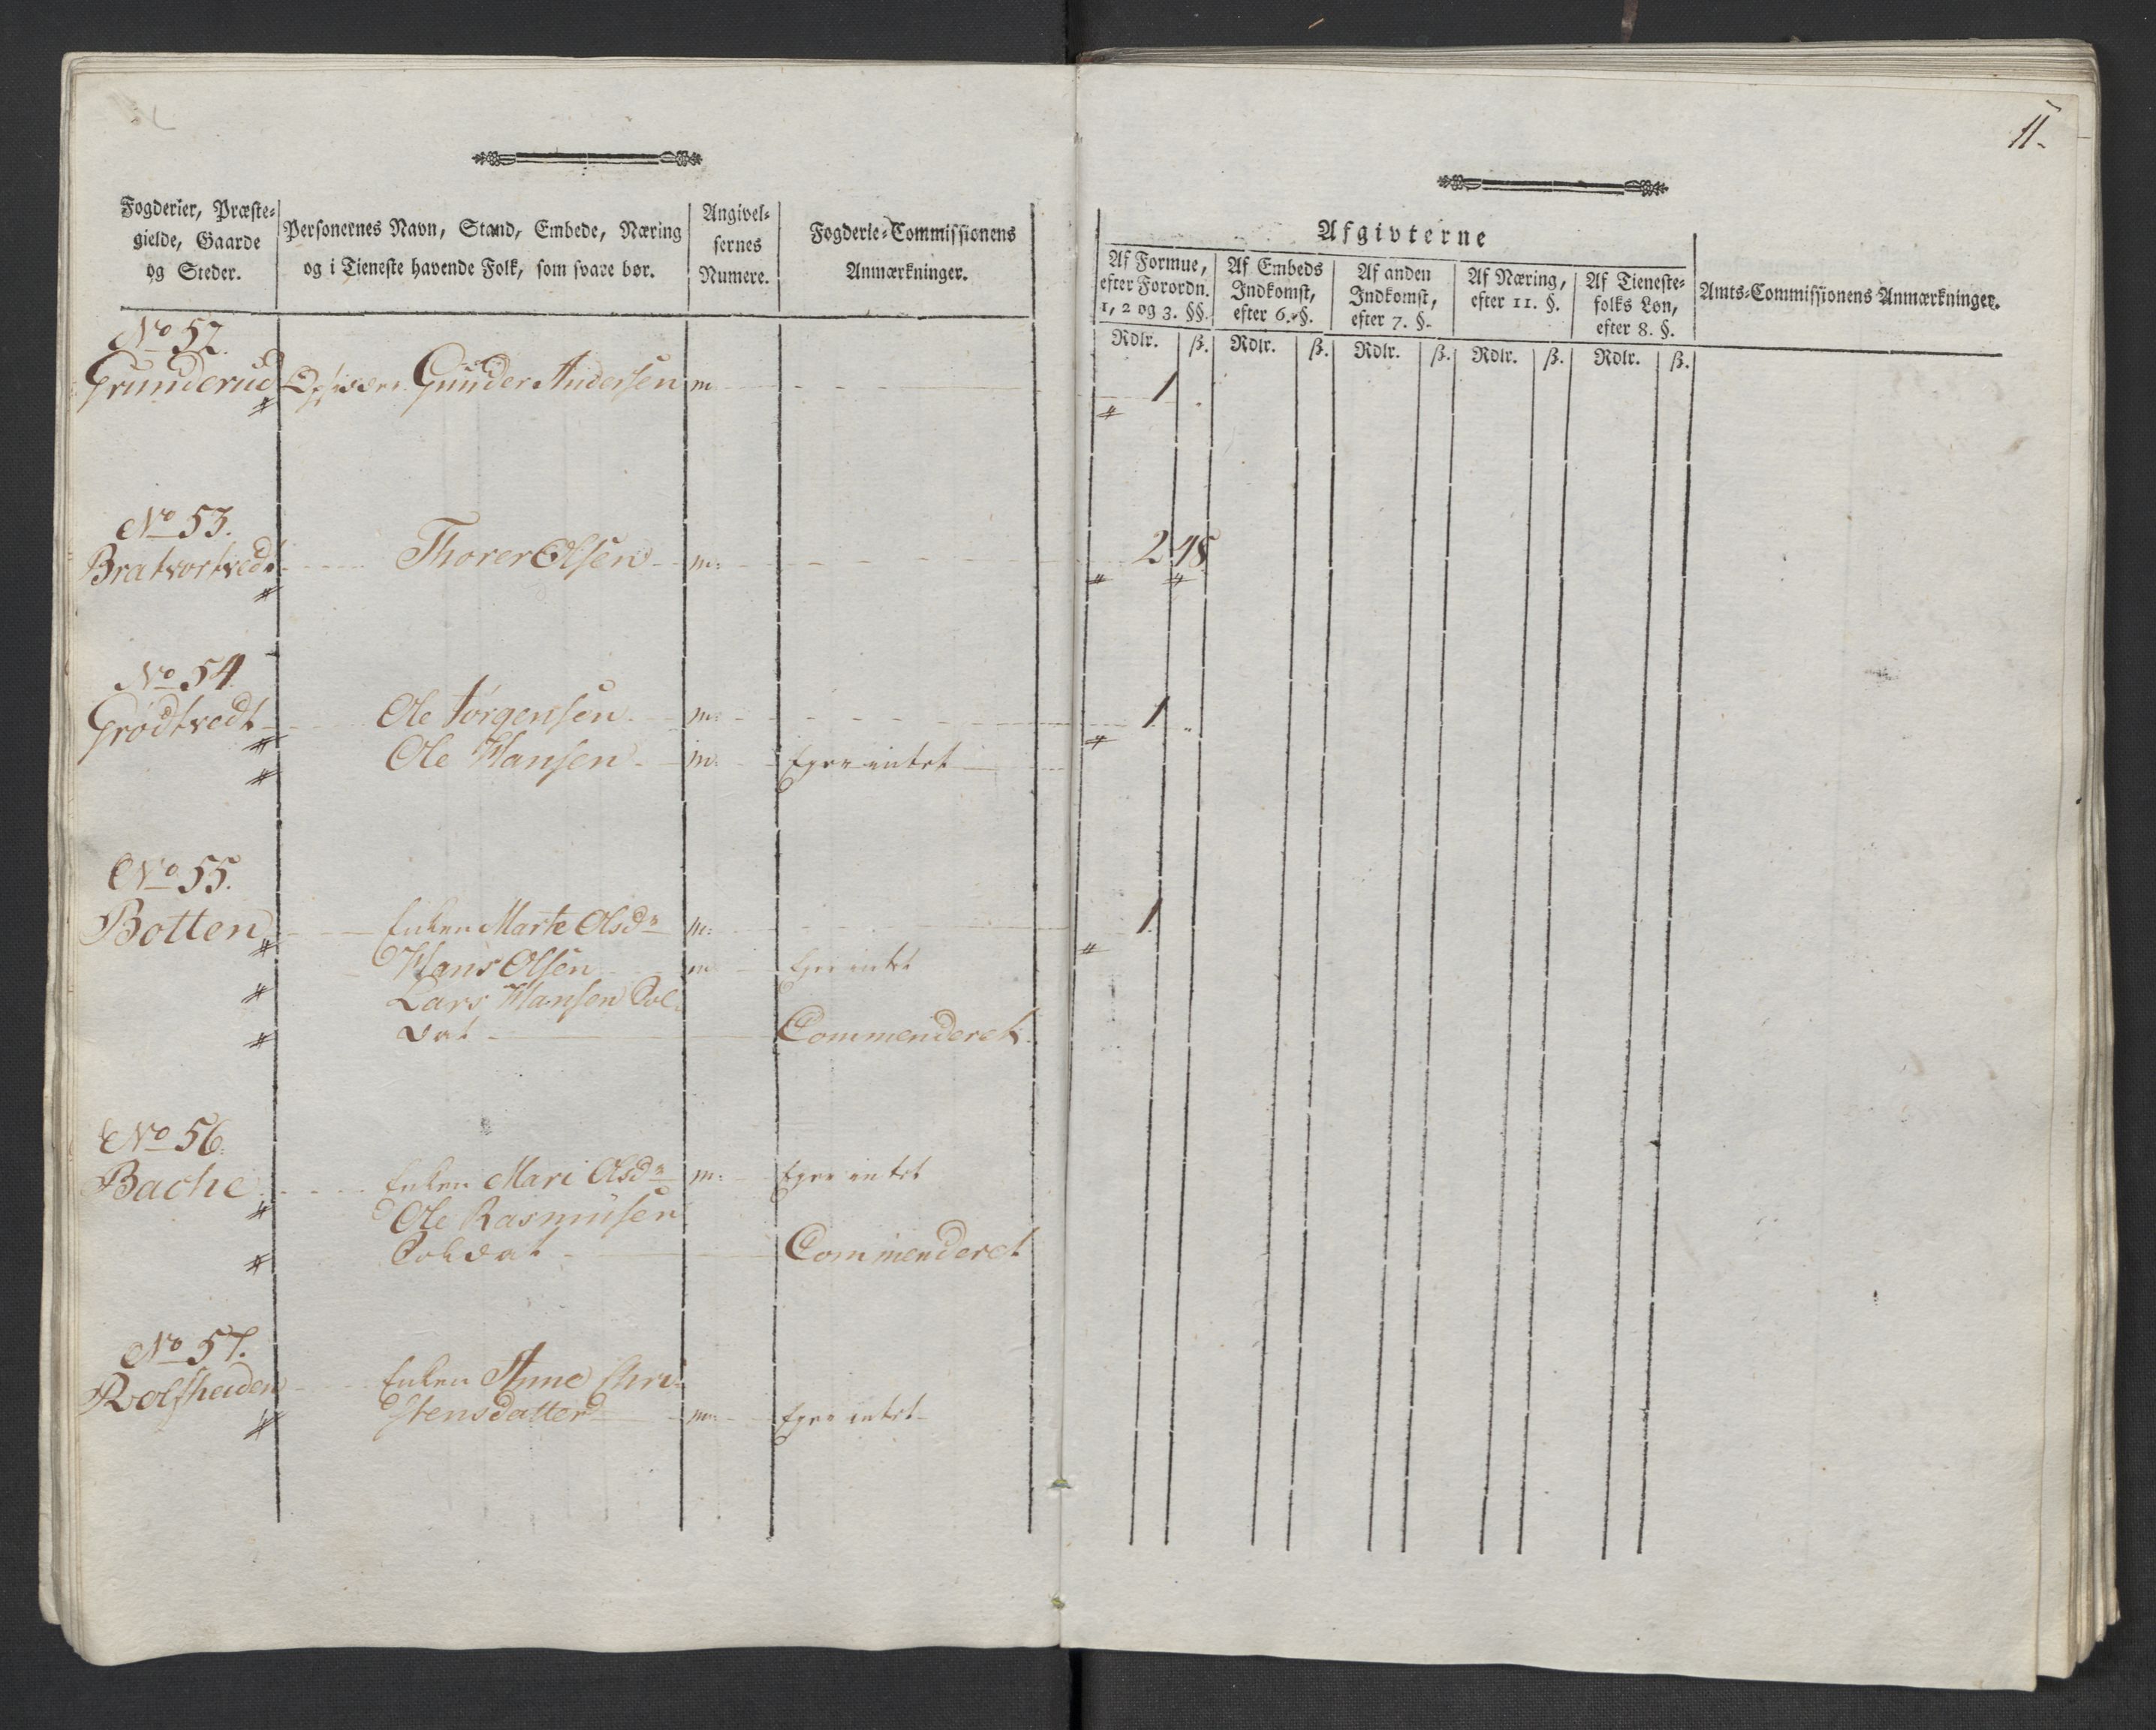 11.
Fogderier, Præste-
gielde, Gaarde
og Steder.
Personernes Navn, Stand, Embede, Næring
og i Tieneste havende Folk, som svare bør.
Angivel-
sernes
Numere.
Fogderie-Commissionens
Anmærkninger.
Afgivterne
Af Formue,
efter Forordn.
1, 2 og 3. §§.
Af Embeds
Indkomst,
efter 6. §.
Af anden
Indkomst,
efter 7. §.
Af Næring,
efter 11. §.
Af Tieneste-
folks Løn,
efter 8. §.
Amts-Commissionens Anmærkninger.
Rdlr. ß. Rdlr. ß. Rdlr. ß. Rdlr. ß. Rdlr. ß.
No 52.
Grunderud Gunder Andersen m 1
No 53.
Bratvortvedt Thorer Olsen m: 2 48
No 54
Grødtvedt Ole Jørgensen m: 1
Ole Hansen m: Ejer intet
No 55.
Botten Enken Marte Olsdr m: 1
Hans Olsen m Ejer intet
Lars Hansen Sol-
dat Commenderet
No 56.
Bache Enken Mari Olsdr m: Ejer intet
Ole Rasmusen
Soldat Commenderet
No 57.
Rolfsheiden Enken Anne Chri-
stensdatter m: Ejer intet